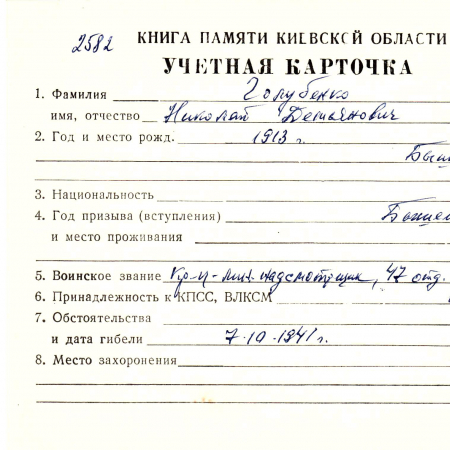 2582 КНИГА ПАМЯТИ КИЕВСКОЙ ОБЛАСТИ
УЧЕТНАЯ КАРТОЧКА
1. Фамилия Голубенко
имя, отчество Николай Демьянович
2. Год и место рожд. 1913 г.
3. Национальность
4. Год призыва (вступления)
и место проживания
5. Воинское звание Кр-ц - лин. надсмотрщик, 47 отд.
6. Принадлежность к КПСС, ВЛКСМ
7. Обстоятельства
и дата гибели 7.10.1941 г.
8. Место захоронения